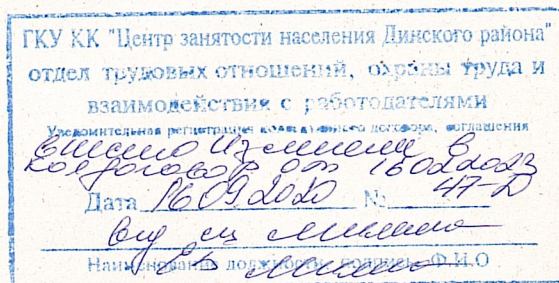 ГКУ КК "Центр занятости населения Динского района"
отдел трудовых отношений, охраны труда и
взаимодействия с работодателями
Уведомительная регистрация коллективного договора, соглашения
изменения в
колдоговор от 16022023
Дата 16.09.2020 № 47-D
Наименование должности, подпись, Ф.И.О